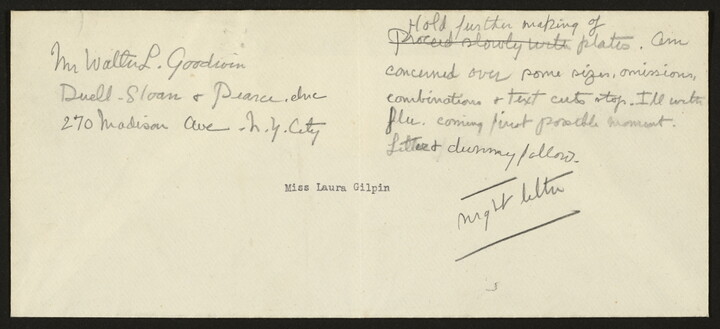 Mr Walter L. Goodwin
Duell-Sloan & Pearce. Inc
270 Madison Ave - N.Y. City
Miss Laura Gilpin
Hold further making of
Proceed slowly with plates. Am
concerned over some sizes, omissions,
combinations & text cuts stop. Ill with
flu. coming first possible moment.
Letter & dummy follow.
night letter